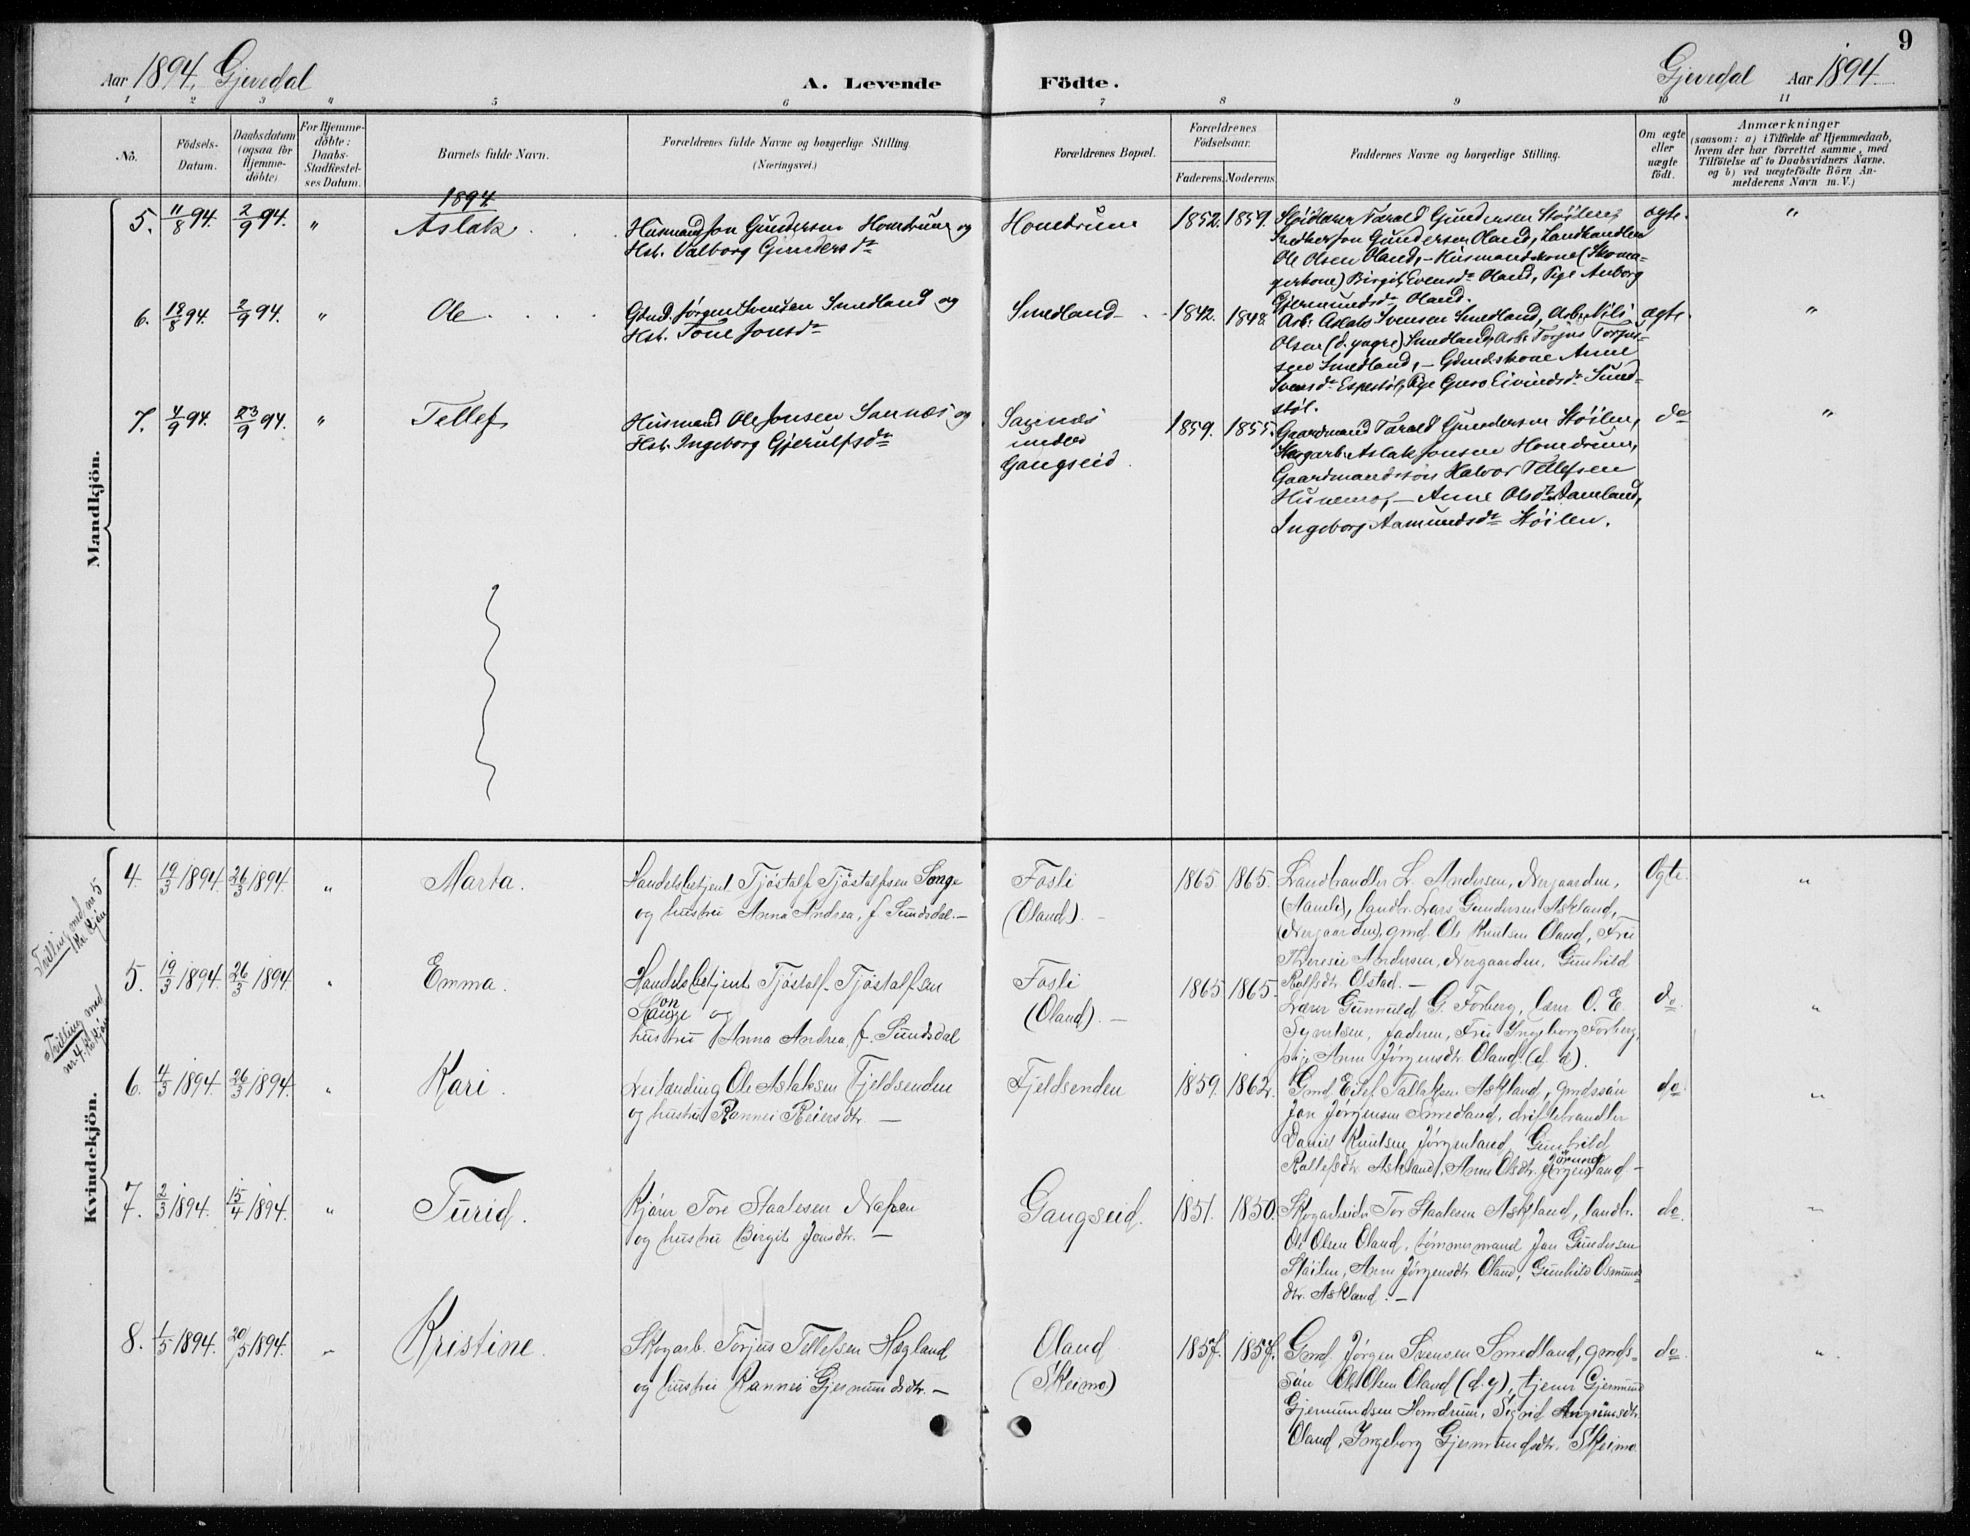 9
Aar 1894. Gjevedal
A. Levende Födte.
Gjevedal Aar 1894
1 2 3 4 5 6 7 8 9 10 11
No.
Födsels-
Datum.
Daabsdatum
(ogsaa for
Hjemme-
döbte)
For Hjemme-
döbte:
Daabs-
Stadfæstel-
ses Datum.
Barnets fulde Navn.
Forældrenes fulde Navne og borgerlige Stilling.
(Næringsvei.)
Forældrenes Bopæl.
Forældrenes
Födselsaar.
Faderens. Moderens.
Faddernes Navne og borgerlige Stilling.
Om ægte
eller
uægte
født.
Anmærkninger
(saasom: a) i Tilfælde af Hjemmedaab,
hvem der har forrettet samme, med
Tilföielse af to Daabsvidners Navne,
og b) ved uægtefödte Börn An-
melderens Navn m. V.)
Mandkjön.
1894
5. 11/8 94. 2/9 94. " Aslak
Husmand Jon Gundersen Homdrum og
Hst. Valborg Gundersdtr
Homdrum 1852. 1859.
Tarald Gundersen Støilen,
Jon Gundersen Oland, Landhandler
Ole Olsen Oland, - Husmandskone (Skoma-
gerkone) Birgit Evensdtr Oland, Pige Anborg
Gjermundsdtr Oland.
ægte. "
6. 18/8 94. 2/9 94. " Ole
Gmd. Jørgen Svendsen Smedland og
Hst. Tone Jonsdtr
Smedland 1842. 1848
Arb. Aslak Svensen Smedland, Arb. Nils
Olsen (d. yngre) Smedland, Arb. Torjus Torjus-
sen Smedland, - Gmdskone Anne
Svensdtr Espestøl, Pige Guro Eivindsdtr Smed-
støl.
ægte. "
7. 4/9 94. 23/9 94. " Tellef
Husmand Ole Jonsen Sannæs og
Hst. Ingeborg Gjerulfsdtr
Sannæs
under
Gangseid.
1859. 1855.
Gaardmand Tarald Gundersen Støilen,
Skogarb. Aslak Jonsen Homdrum,
Gaardmandssøn Halvor Tellefsen
- Anne Olsdtr Aamland,
Ingeborg Aamundsdtr Støilen.
do "
Kvindekjön.
Tvilling med nr 5
Kv. kjøn
4. 19/3 1894. 26/3 1894. " Marta.
Handelsbetjent Tjøstalf Tjøstalfsen Songe
og hustru Anna Andrea, f. Sundsdal. -
Fosli
(Oland). -
1865 1865.
Landhandler L. Andersen, Nergaarden,
(Aamli), landbr. Lars Gundersen Askland, -
(Nergaarden), gmd. Ole Knutsen Oland, Fru
Theresie Andersen, Nergaarden, Gunhild
Rolfsdtr Olstad. -
Ægte. "
Tvilling med
nr. 4. Kv kjøn
5. 19/3 1894. 26/3 1894. " Emma.
Handelsbetjent Tjøstalf Tjøstalfsen
on
Sange og
hustru Anna Andrea, f. Sundsdal
Fosli
(Oland). -
1865 1865.
Lærer Gunnuld G. Forberg, Lærer O. E.
Syvertsen, Jaderen, Fru Ingeborg Forberg,
pige Anne Jørgensdtr Oland (d. æ).
do. "
6. 4/3 1894. 26/3 1894. " Kari.
Leilænding Ole Aslaksen Fjeldsenden
og hustru Rannei Reiersdtr. -
Fjeldsenden 1859. 1862.
Gmd. Eilef Tallaksen Askland, gmdssøn
Jon Jørgensen Smedland, driftehandler
Daniel Knutsen Jørgenland, Gunhild
Rollefsdtr. Askland, Anne Olsdtr. -
do. "
7. 2/3 1894. 15/4 1894. " Turid.
Kjører Tore Staalesen Næsen
og hustru Birgit Jensdtr. -
Gangseid. 1851. 1850.
Skogarbeider Tor Staalesen Askland, landbr.
Ole Olsen Oland, tømmermand Jon Gundersen
Støilen, Anne Jørgensdtr. Oland, Gunhild Osmunds-
dtr. Askland. -
do. "
8. 1/5 1894. 20/5 1894. " Kristine.
Skogarb. Torjus Tellefsen Hægland
og hustru Rannei Gjermundsdtr. -
Oland
(Skeimo)
1857. 1857.
Gmd. Jørgen Svensen Smedland, gmds-
søn Ole Olsen Oland (d. y), tjener Gjermund
Gjermundsen Homdrum, Sigrid Angrimsdtr.
Oland, Ingeborg Gjermundsdtr. Skeimo
do. "